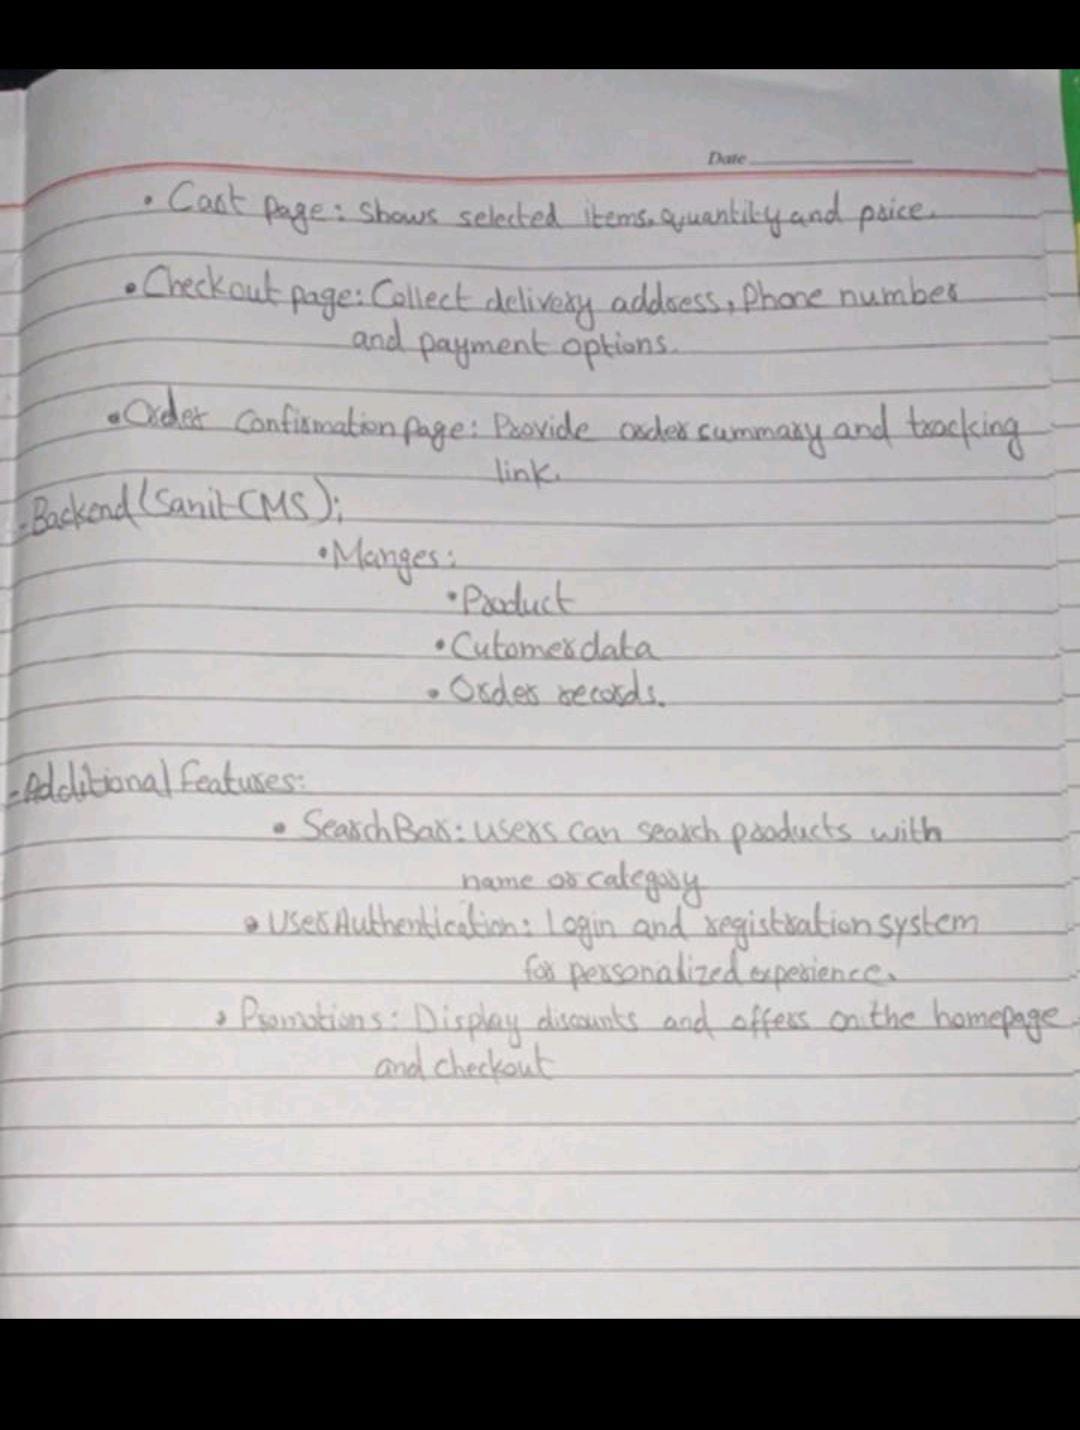 Date
• Cart Page: Shows selected items, quantity and price.
• Checkout page: Collect delivery address, Phone number
and payment options.
• Order Confirmation page: Provide order summary and tracking
link.
- Backend (Sanit CMS):
• Manges:
• Product
• Cutomer data
• Order records.
- Additional Features:
• Search Bar: users can search products with
name or category
• User Authentication: Login and registration system
for personalized experience.
• Promotions: Display discounts and offers on the homepage
and checkout